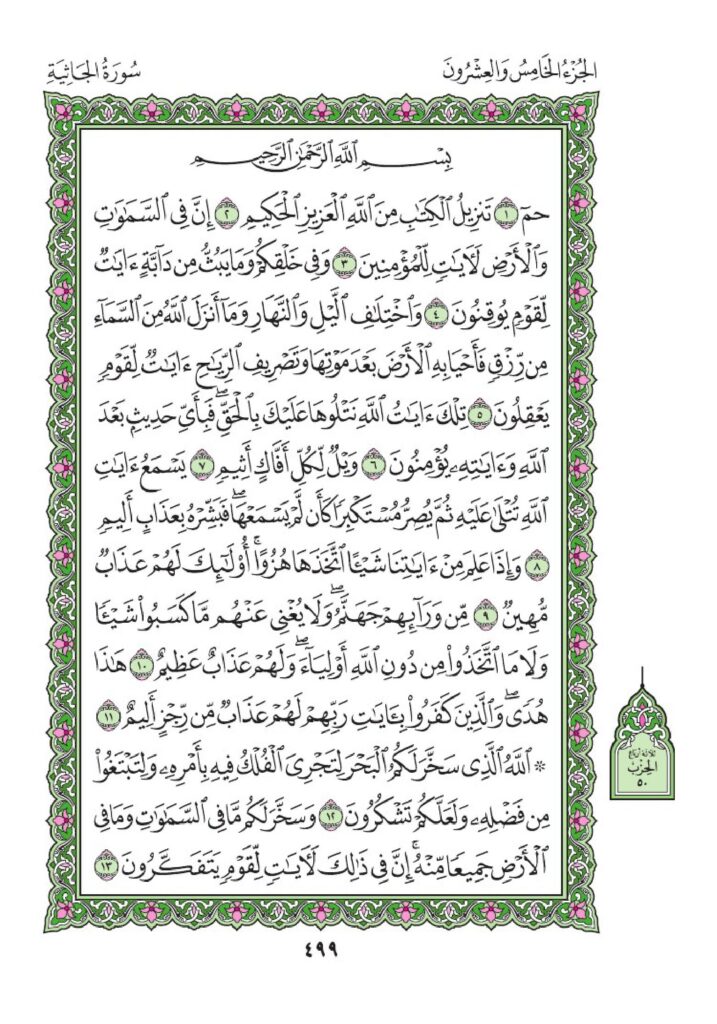 الجُزْءُ الخَامِسُ وَالعِشْرُونَ
سُورَةُ الجَاثِيَةِ
بِسْمِ اللَّهِ الرَّحْمَٰنِ الرَّحِيمِ
حمٓ ١ تَنزِيلُ الْكِتَٰبِ مِنَ اللَّهِ الْعَزِيزِ الْحَكِيمِ ٢ إِنَّ فِى السَّمَٰوَٰتِ
وَالْأَرْضِ لَءَايَٰتٍ لِّلْمُؤْمِنِينَ ٣ وَفِى خَلْقِكُمْ وَمَا يَبُثُّ مِن دَآبَّةٍ ءَايَٰتٌ
لِّقَوْمٍ يُوقِنُونَ ٤ وَاخْتِلَٰفِ الَّيْلِ وَالنَّهَارِ وَمَآ أَنزَلَ اللَّهُ مِنَ السَّمَآءِ
مِن رِّزْقٍ فَأَحْيَا بِهِ الْأَرْضَ بَعْدَ مَوْتِهَا وَتَصْرِيفِ الرِّيَٰحِ ءَايَٰتٌ لِّقَوْمٍ
يَعْقِلُونَ ٥ تِلْكَ ءَايَٰتُ اللَّهِ نَتْلُوهَا عَلَيْكَ بِالْحَقِّۖ فَبِأَىِّ حَدِيثٍۭ بَعْدَ
اللَّهِ وَءَايَٰتِهِۦ يُؤْمِنُونَ ٦ وَيْلٌ لِّكُلِّ أَفَّاكٍ أَثِيمٍ ٧ يَسْمَعُ ءَايَٰتِ
اللَّهِ تُتْلَىٰ عَلَيْهِ ثُمَّ يُصِرُّ مُسْتَكْبِرًا كَأَن لَّمْ يَسْمَعْهَاۖ فَبَشِّرْهُ بِعَذَابٍ أَلِيمٍ
٨ وَإِذَا عَلِمَ مِنْ ءَايَٰتِنَا شَيْـًٔا اتَّخَذَهَا هُزُوًاۚ أُو۟لَٰٓئِكَ لَهُمْ عَذَابٌ
مُّهِينٌ ٩ مِّن وَرَآئِهِمْ جَهَنَّمُۖ وَلَا يُغْنِى عَنْهُم مَّا كَسَبُوا۟ شَيْـًٔا
وَلَا مَا اتَّخَذُوا۟ مِن دُونِ اللَّهِ أَوْلِيَآءَۖ وَلَهُمْ عَذَابٌ عَظِيمٌ ١٠ هَٰذَا
هُدًىۖ وَالَّذِينَ كَفَرُوا۟ بِـَٔايَٰتِ رَبِّهِمْ لَهُمْ عَذَابٌ مِّن رِّجْزٍ أَلِيمٌ ١١
۞ اللَّهُ الَّذِى سَخَّرَ لَكُمُ الْبَحْرَ لِتَجْرِىَ الْفُلْكُ فِيهِ بِأَمْرِهِۦ وَلِتَبْتَغُوا۟
مِن فَضْلِهِۦ وَلَعَلَّكُمْ تَشْكُرُونَ ١٢ وَسَخَّرَ لَكُم مَّا فِى السَّمَٰوَٰتِ وَمَا فِى
الْأَرْضِ جَمِيعًا مِّنْهُۚ إِنَّ فِى ذَٰلِكَ لَءَايَٰتٍ لِّقَوْمٍ يَتَفَكَّرُونَ ١٣
ثلاثة أرباع
الحِزْب
٥٠
٤٩٩